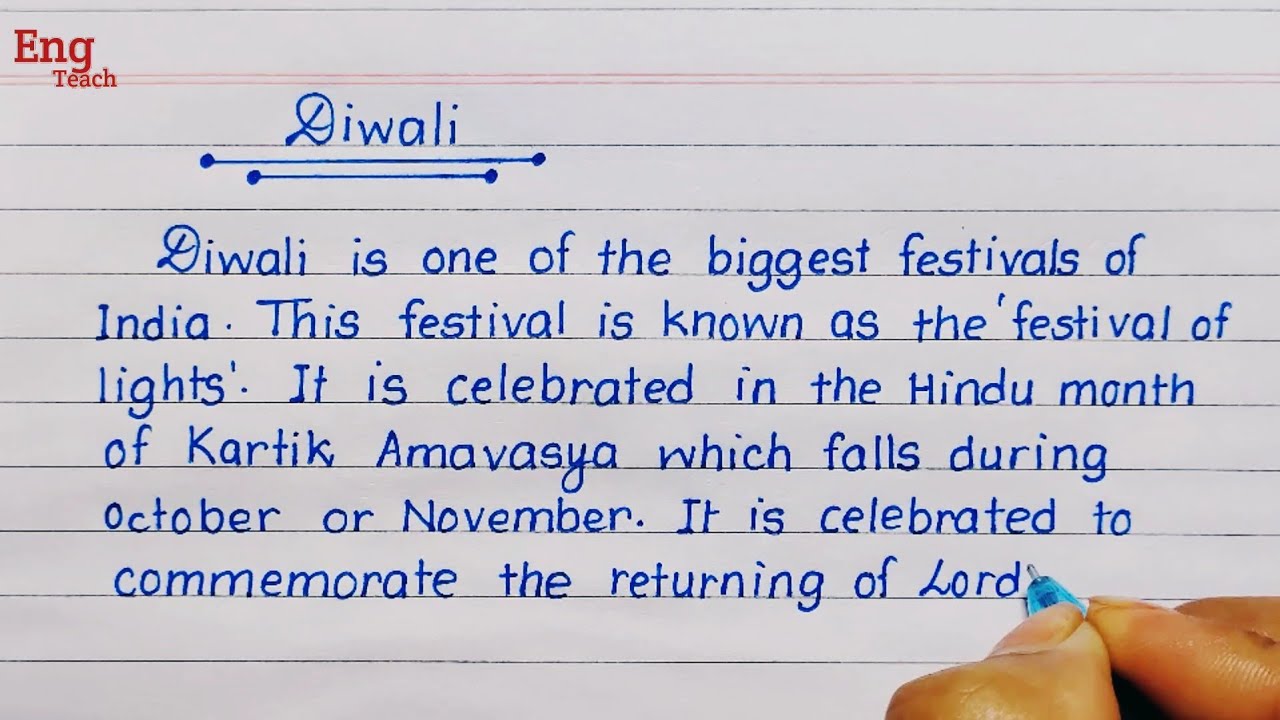 Eng
Teach
Diwali
Diwali is one of the biggest festivals of
India. This festival is known as the 'festival of
lights'. It is celebrated in the Hindu month
of Kartik Amavasya which falls during
October or November. It is celebrated to
commemorate the returning of Lord